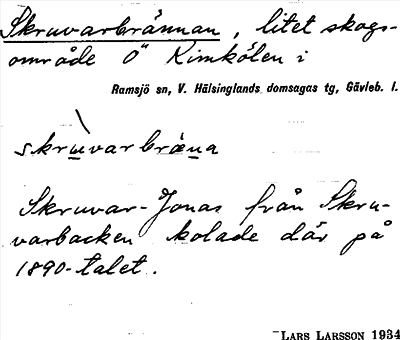 Skruvarbrännan, litet skogs-
område Ö Kimkölen i
Ramsjö sn, V. Hälsinglands domsagas tg, Gävleb. l.
skruvarbräna
Skruvar-Jonas från Skru-
varbacken kolade där på
1890-talet.
LARS LARSSON 1934